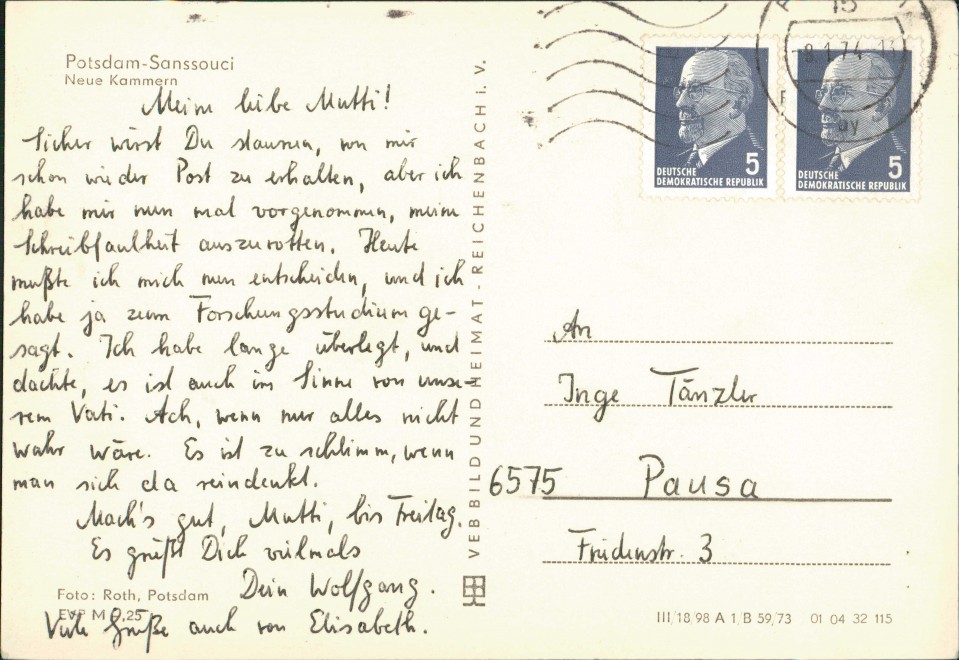 Potsdam-Sanssouci
Neue Kammern
Meine liebe Mutti!
Sicher wirst Du staunen, von mir
schon wieder Post zu erhalten, aber ich
habe mir nun mal vorgenommen, meine
Schreibfaulheit auszurotten. Heute
mußte ich mich nun entscheiden, und ich
habe ja zum Forschungsstudium ge-
sagt. Ich habe lange überlegt, und
dachte, es ist auch im Sinne von unse-
rem Vati. Ach, wenn nur alles nicht
wahr wäre. Es ist zu schlimm, wenn
man sich da reindenkt.
Mach's gut, Mutti, bis Freitag.
Es grüßt Dich vielmals
Dein Wolfgang.
Viele Grüße auch von Elisabeth.
Foto: Roth, Potsdam
EVP M 0,25
VEB BILD UND HEIMAT - REICHENBACH i. V.
15
-8.1.74-13
ay
5
DEUTSCHE
DEMOKRATISCHE REPUBLIK
5
DEUTSCHE
DEMOKRATISCHE REPUBLIK
An
Inge Tänzler
6575 Pausa
Friedenstr. 3
III/18/98 A 1/B 59/73 01 04 32 115